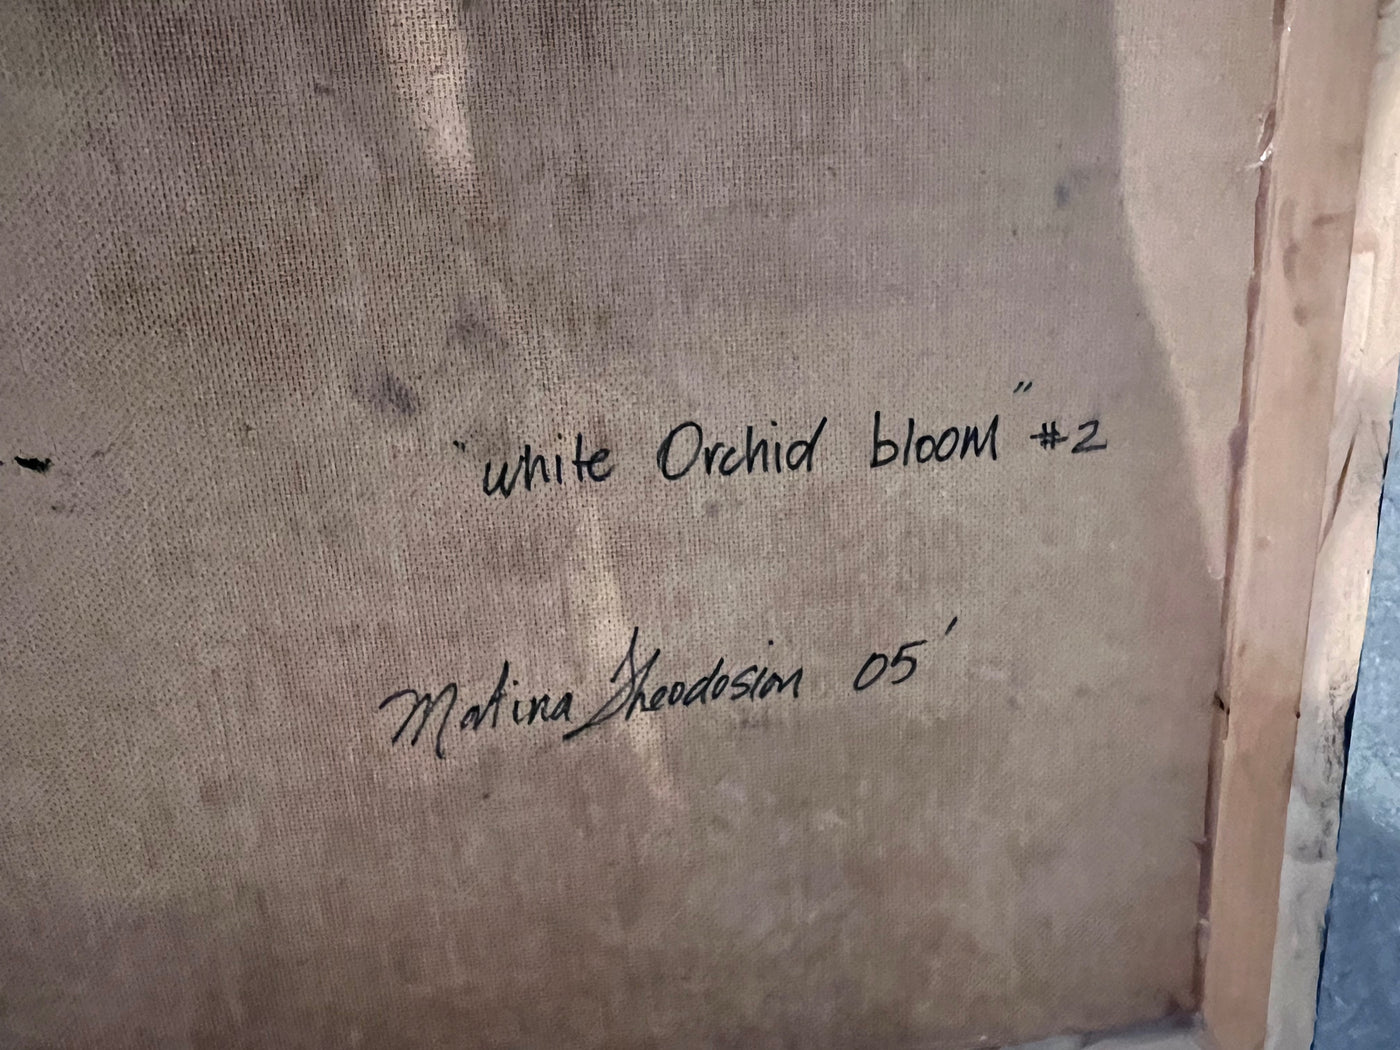 "white Orchid bloom" #2
Matina Theodosion 05'